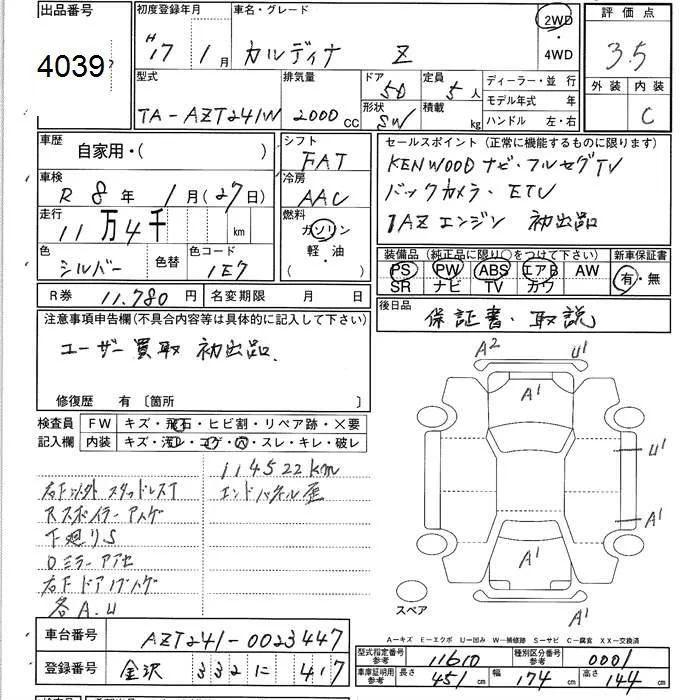 出品番号
4039
初度登録年月
H17年 1月
車名・グレード
カルディナ Z
2WD
・
4WD
評価点
3.5
外装 内装
C
型式
TA-AZT241W
排気量
2000 CC
ドア
5D
形状
SW
定員
5人
積載
kg
ディーラー・並行
モデル年式 年
ハンドル 左・右
車歴
自家用・( )
車検
R 8年 1月(27日)
走行
11万4千 km
色
シルバー
色替
色コード
1E7
シフト
FAT
冷房
AAC
燃料
ガソリン
軽・油
( )
セールスポイント (正常に機能するものに限ります)
KENWOOD ナビ・フルセグTV
バックカメラ・ETC
1AZエンジン 初出品
装備品 (純正品に限り○をつけて下さい)
PS PW ABS エアB AW
SR ナビ TV カワ
新車保証書
有・無
R券 11.780円
名変期限 月 日
後日品
保証書・取説
注意事項申告欄(不具合内容等は具体的に記入して下さい)
ユーザー買取 初出品.
修復歴 有 〔箇所 〕
検査員
記入欄
FW キズ・飛石・ヒビ割・リペア跡・×要
内装 キズ・汚レ・コゲ・穴・スレ・キレ・破レ
114522km
エンドパネル歪
下廻りS
各A.U
A2
U1
A1
U1
A1
A1
A1
スペア
A―キズ E―エクボ U―凹み W―補修跡 S―サビ C―腐食 XX―交換済
車台番号
AZT241-0023447
登録番号
金沢 332 に 417
型式指定番号
参考
11610
種別区分番号
参考
0001
車庫証明用
参考
長さ 451 cm
幅 174 cm
高さ 144 cm